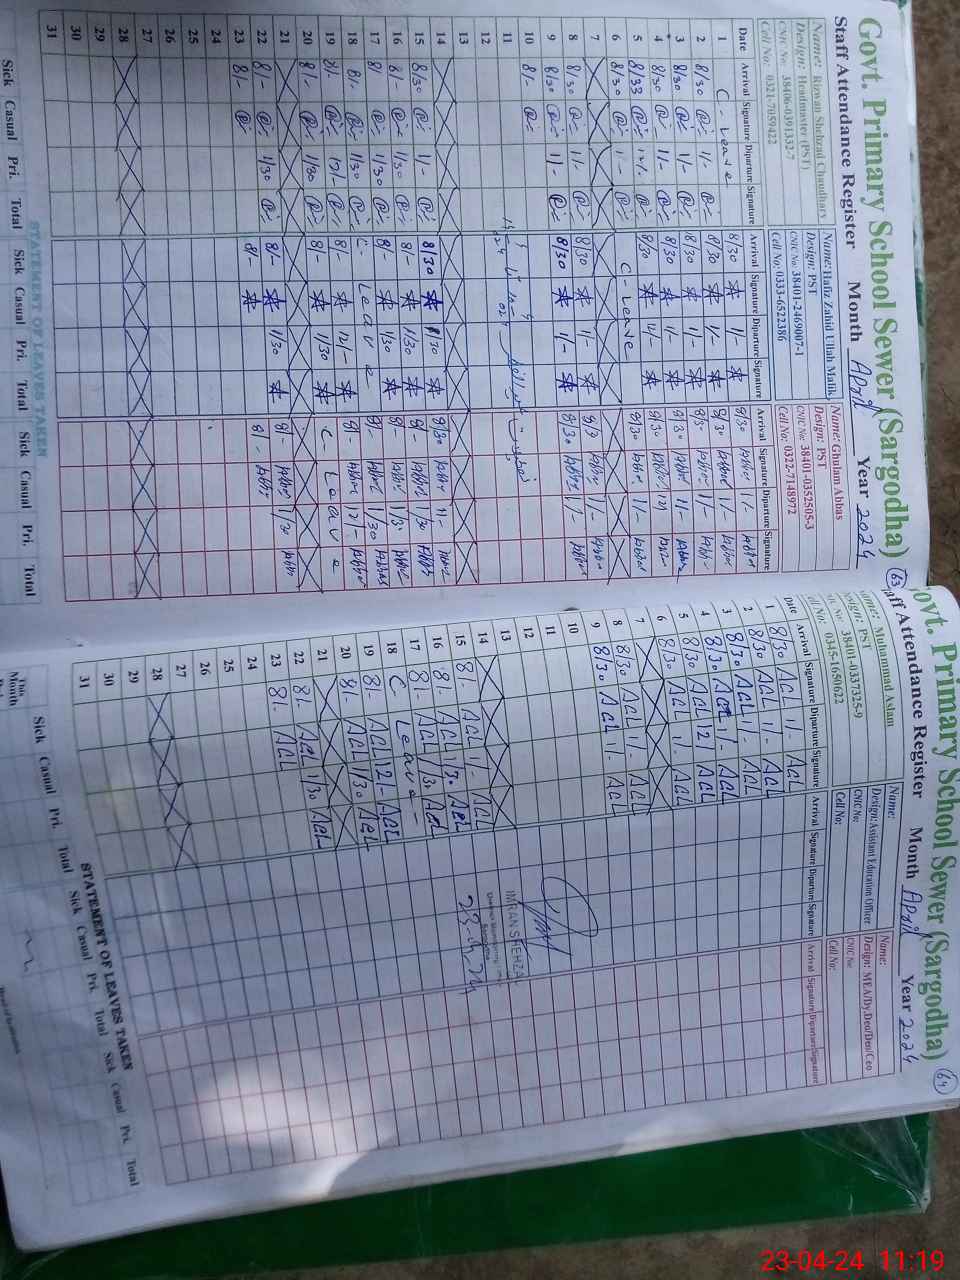 Govt. Primary School Sewer (Sargodha) 63
Staff Attendance Register Month April Year 2024
Name: Rizwan Shehzad Chaudhary
Design: Headmaster (PST)
CNIC No: 38406-0391332-7
Cell No: 0321-7059422
Name: Hafiz Zahid Ullah Malik
Design: PST
CNIC No: 38401-2469007-1
Cell No: 0333-6522386
Name: Ghulam Abbas
Design: PST
CNIC No: 38401-0352505-3
Cell No: 0322-7148972
Date Arrival Signature Diparture Signature Arrival Signature Diparture Signature Arrival Signature Diparture Signature
1 C - Leave 8/30 1/- 8/30 1/-
2 8/30 1/- 8/30 1/- 8/30 1/-
3 8/30 1/- 8/30 1/- 8/30 1/-
4 8/30 1/- 8/30 1/- 8/30 1/-
5 8/33 12/- 8/30 12/- 8/30 12/-
6 8/30 1/- C - Leave 8/30 1/-
7
8 8/30 1/- 8/30 1/- 8/3 1/-
9 8/30 1/- 8/30 1/- 8/30 1/-
10 8/-
11
12
13
14
15 8/30 1/- 8/30 1/30 8/30 1/-
16 8/- 1/30 8/- 1/30 8/- 1/30
17 8/ 1/30 8/- 1/30 8/- 1/3
18 8/- 1/30 C - Leave 8/- 1/30
19 8/- 12/- 8/- 12/- 8/- 12/-
20 8/- 1/30 8/- 1/30 C - Leave
21
22 8/- 1/30 8/- 1/30 8/- 1/30
23 8/- 8/- 8/-
24
25
26
27
28
29
30
31
Sick Casual Pri. Total Sick Casual Pri. Total Sick Casual Pri. Total
STATEMENT OF LEAVES TAKEN
Govt. Primary School Sewer (Sargodha) 64
Staff Attendance Register Month April Year 2024
Name: Muhammad Aslam
Design: PST
CNIC No: 38401-0337325-9
Cell No: 0345-1650622
Name:
Design: Assistant Education Officer
CNIC No:
Cell No:
Name:
Design: MEA/Dy.Deo/Deo/Ceo
CNIC No:
Cell No:
Date Arrival Signature Diparture Signature Arrival Signature Diparture Signature Arrival Signature Diparture Signature
1 8/30 AGL 1/- AGL
2 8/30 AGL 1/- AGL
3 8/30 AGL 1/- AGL
4 8/30 AGL 1/- AGL
5 8/30 AGL 12/- AGL
6 8/30 AGL 1/- AGL
7
8 8/30 AGL 1/- AGL
9 8/30 AGL 1/- AGL
10
11
12
13
14
15 8/- AGL 1/- AGL
16 8/- AGL 1/30 AGL
17 8/- AGL 1/30 AGL
18 C Leave -
19 8/- AGL 12/- AGL
20 8/- AGL 1/30 AGL
21
22 8/- AGL 1/30 AGL
23 8/- AGL
24
25
26
27
28
29
30
31
IMRAN SHEHZAD
This Month
Sick Casual Pri. Total Sick Casual Pri. Total Sick Casual Pri. Total
STATEMENT OF LEAVES TAKEN
23-04-24 11:19